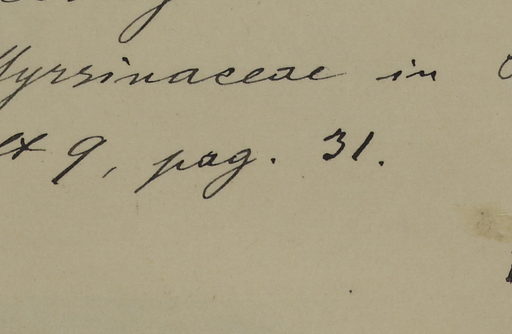 Myrsinaceae in
9, pag. 31.